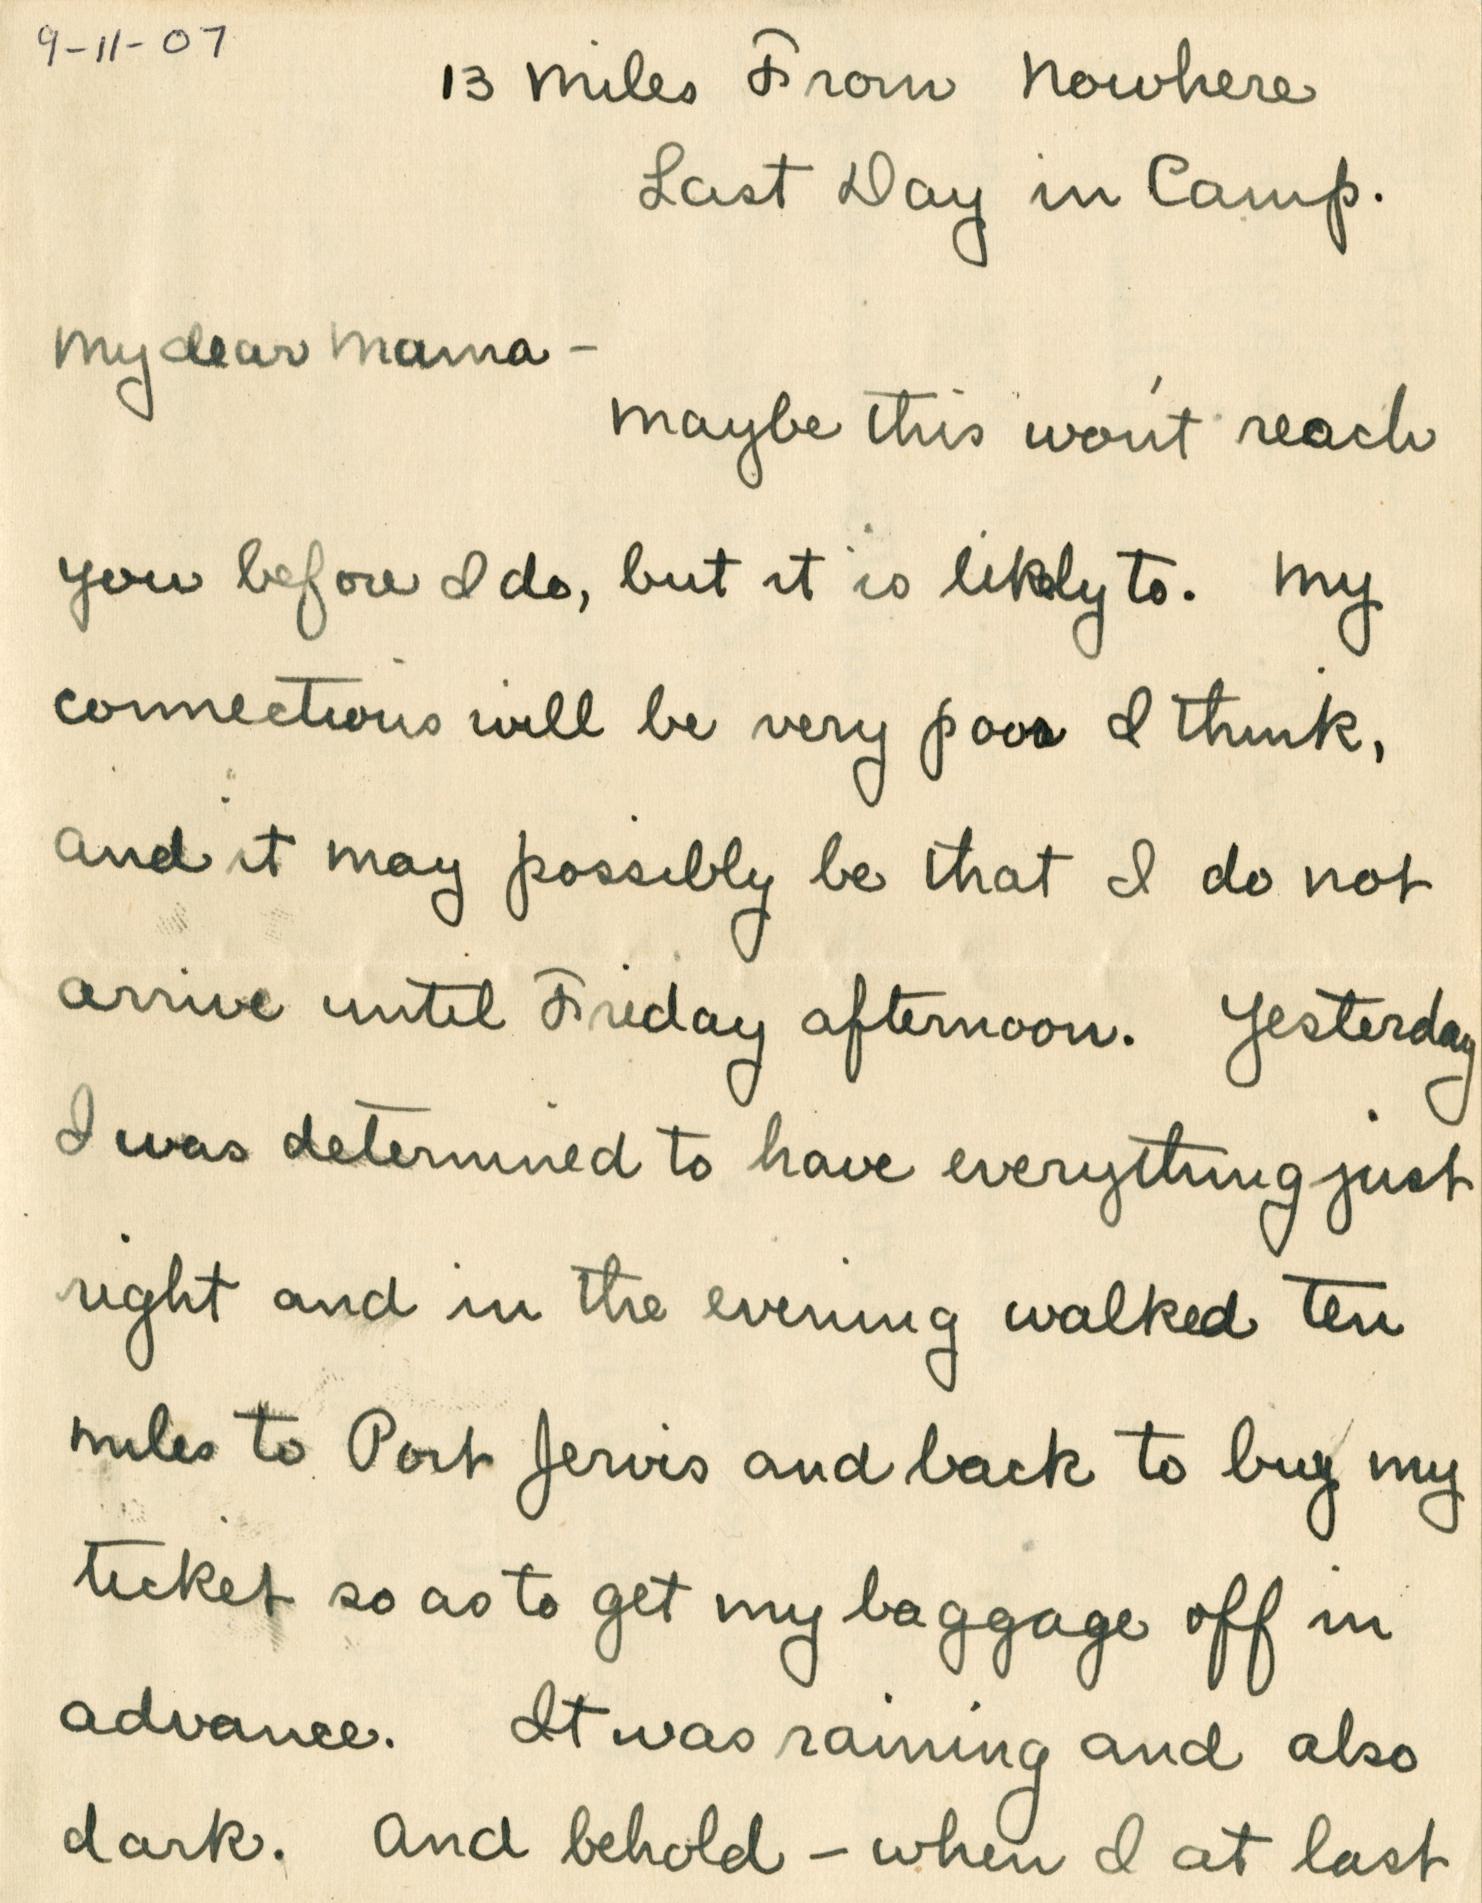 9-11-07
13 Miles From Nowhere
Last Day in Camp.
My dear Mama -
Maybe this won't reach
you before I do, but it is likely to. My
connections will be very poor I think,
and it may possibly be that I do not
arrive until Friday afternoon. Yesterday
I was determined to have everything just
right and in the evening walked ten
miles to Port Jervis and back to buy my
ticket so as to get my baggage off in
advance. It was raining and also
dark. And behold - when I at last